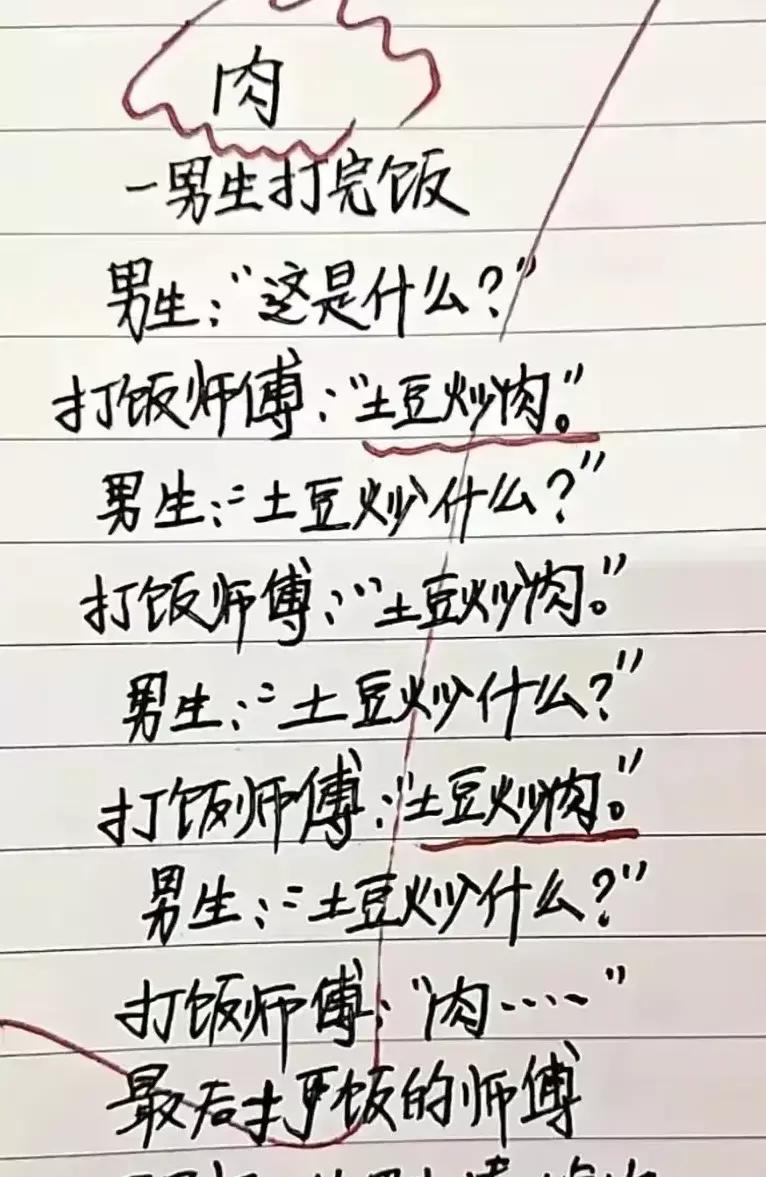 肉
一男生打完饭
男生：“这是什么？”
打饭师傅：“土豆炒肉。”
男生：“土豆炒什么？”
打饭师傅：“土豆炒肉。”
男生：“土豆炒什么？”
打饭师傅：“土豆炒肉。”
男生：“土豆炒什么？”
打饭师傅：“肉……”
最后打饭的师傅